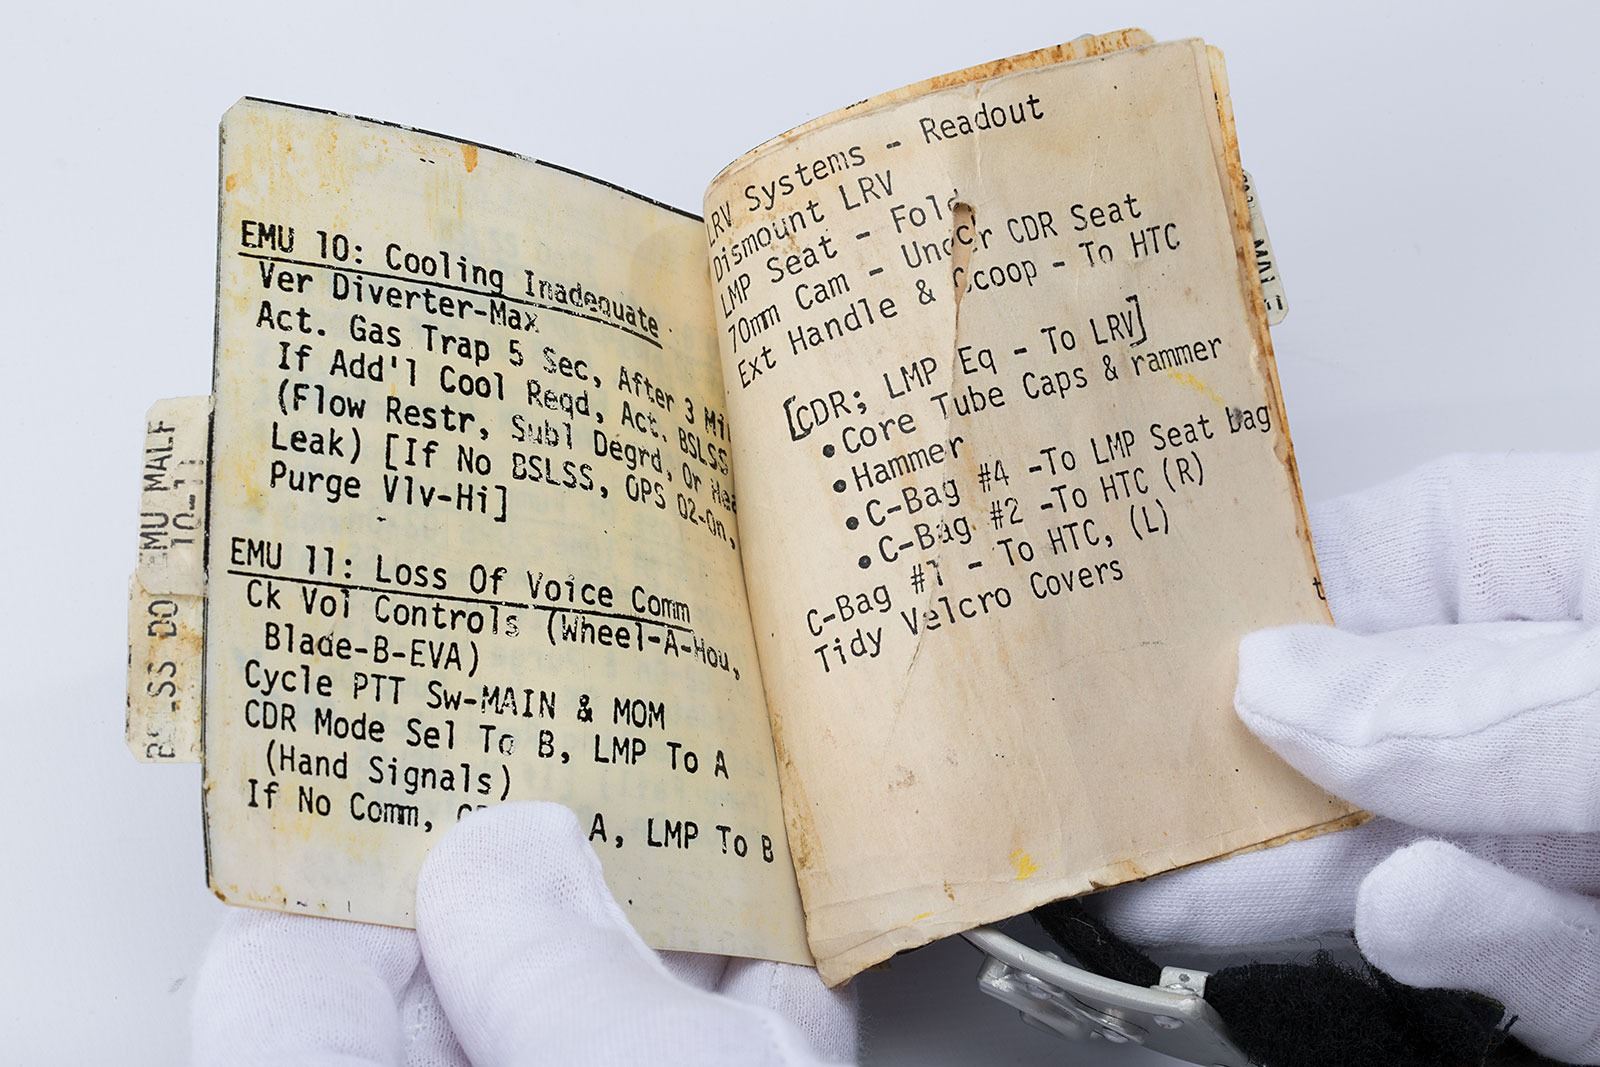 EMU 10: Cooling Inadequate
Ver Diverter-Max
Act. Gas Trap 5 Sec, After 3
If Add'l Cool Reqd, Act. BSLSS
(Flow Restr, Subl Degrd, Or
Leak) [If No BSLSS, OPS O2-On,
Purge Vlv-Hi]
EMU 11: Loss Of Voice Comm
Ck Vol Controls (Wheel-A-Hou,
Blade-B-EVA)
Cycle PTT Sw-MAIN & MOM
CDR Mode Sel To B, LMP To A
(Hand Signals)
If No Comm, A, LMP To B
EMU MALF
10-11
LRV Systems - Readout
Dismount LRV
LMP Seat - Fold
70mm Cam - Under CDR Seat
Ext Handle & Scoop - To HTC
[CDR; LMP Eq - To LRV]
• Core Tube Caps & rammer
• Hammer
• C-Bag #4 -To LMP Seat bag
• C-Bag #2 -To HTC (R)
C-Bag #1 - To HTC, (L)
Tidy Velcro Covers